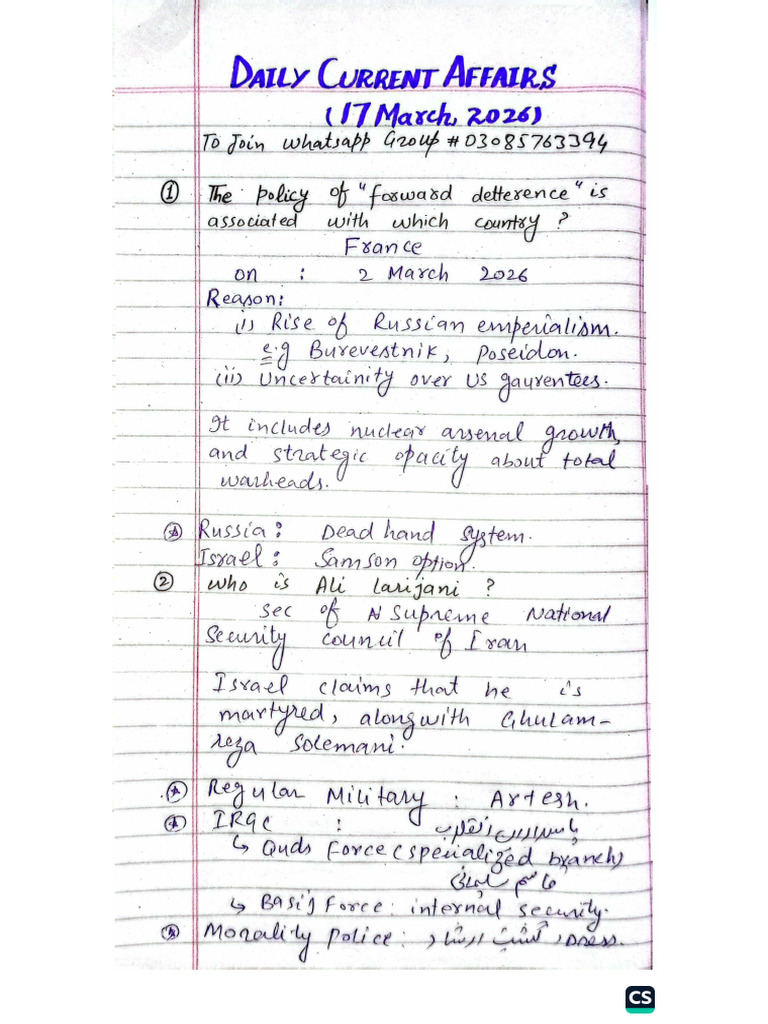 DAILY CURRENT AFFAIRS
(17 March, 2026)
To Join whatsapp Group # 03085763394
① The policy of "forward detterence" is
associated with which country ?
France
on : 2 March 2026
Reason:
(i) Rise of Russian emperialism.
e.g Burevestnik, Poseidon.
(ii) Uncertainity over US gaurentees.
It includes nuclear arsenal growth,
and strategic opacity about total
warheads.
Russia: Dead hand system.
Israel: Samson option.
② who is Ali Larijani ?
sec of Supreme National
Security council of Iran
Israel claims that he is
martyred, alongwith Ghulam-
reza Solemani.
Regular Military : Artesh.
IRGC : پاسداران انقلاب
↳ Quds Force (specialized branch)
قاسم سلیمانی
↳ Basij Force: internal security.
Morality police: گشت ارشاد, Dress.
CS